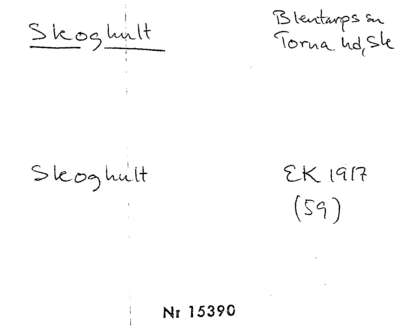 Skoghult
Blentarps sn
Torna hd, Sk
Skoghult
EK 1917
(59)
Nr 15390